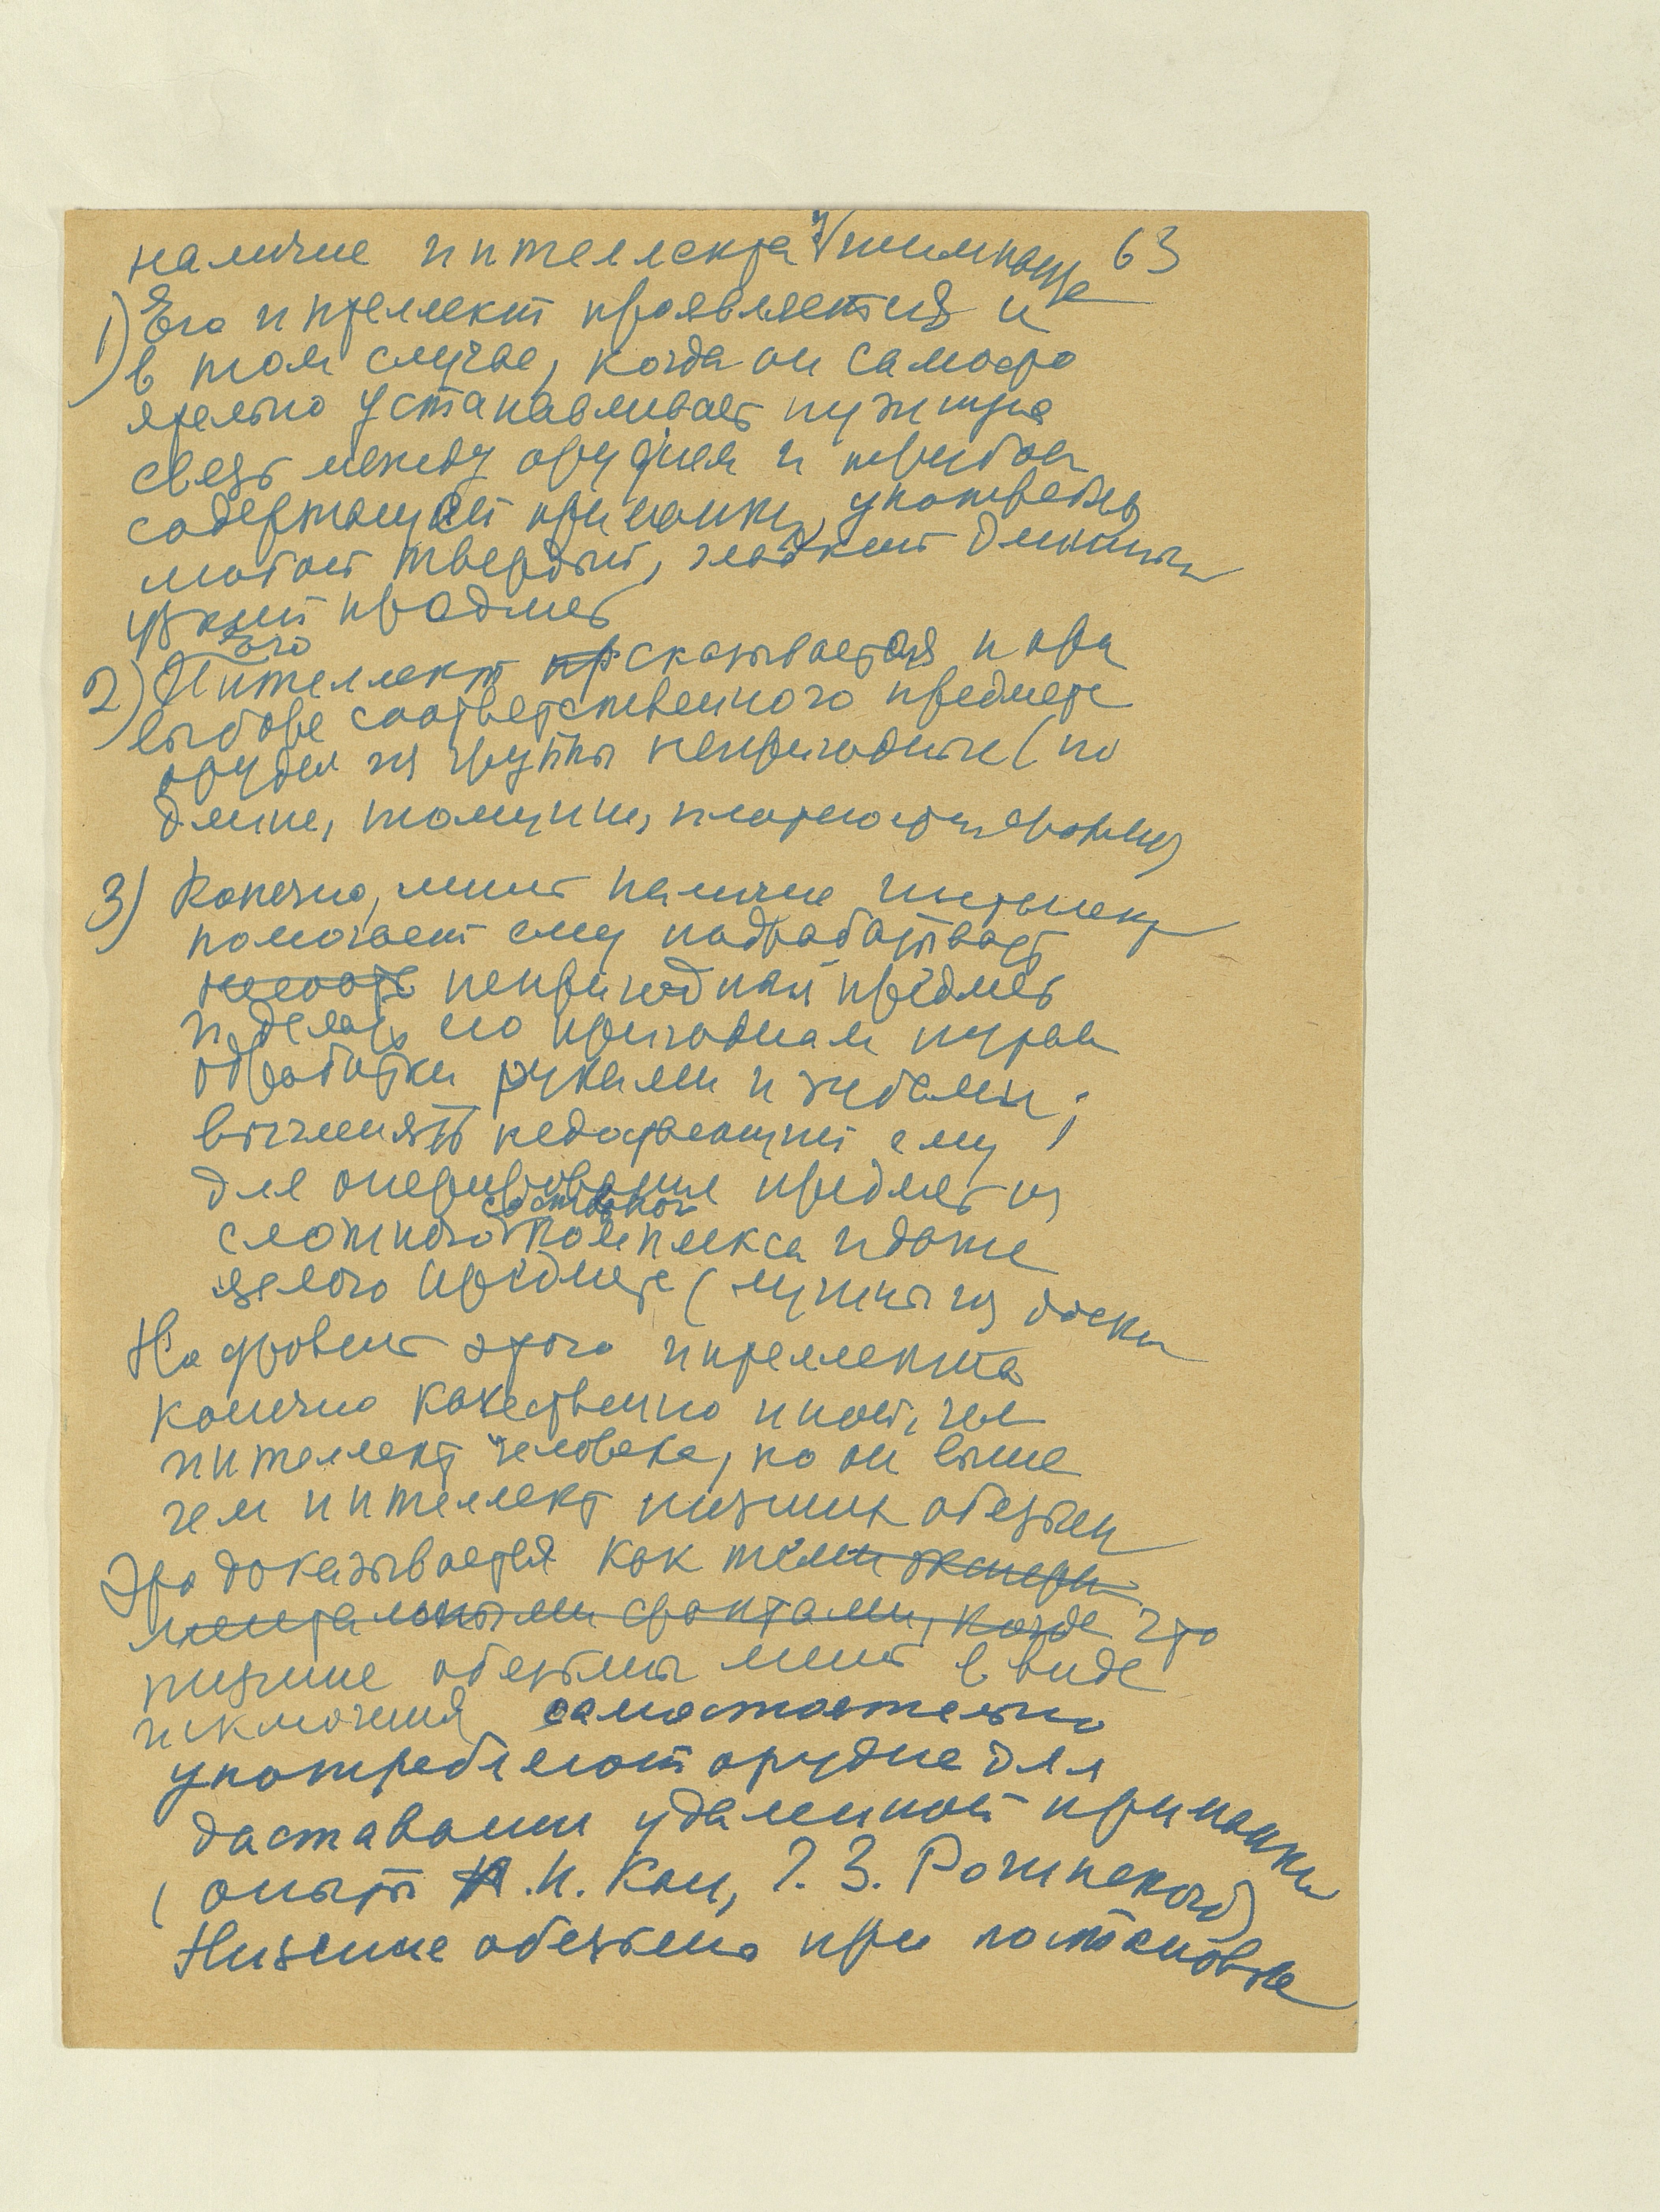 наличие интеллекта у шимпанзе 63
1) Его интеллект проявляется и
в том случае, когда он самосто
ятельно устанавливает нужную
связь между орудием и трубой
содержащей приманку, употребляя
твердый, гладкий длинный
узкий предмет
2) Его Интеллект сказывается и при
выборе соответственного предмета
орудия из группы непригодных (по
длине, толщине, плотности, форме)
3) Конечно, лишь наличие интеллекта
помогает ему подрабатывать
непригодный предмет
и делать его пригодным путем
обработки руками и зубами;
вычленять недостающий ему
для оперирования предмет из
сложного составного комплекса и даже
целого предмета (лучины из доски
Но уровень этого интеллекта
конечно качественно иной, чем
интеллект человека, но он выше
чем интеллект низших обезьян
Это доказывается как тем экспери
ментальными фактами, когда что
низшие обезьяны лишь в виде
исключения самостоятельно
употребляют орудие для
доставания удаленной приманки
(опыты Н. Кац, Г. З. Рогинского)
Низшие обезьяны при постановке